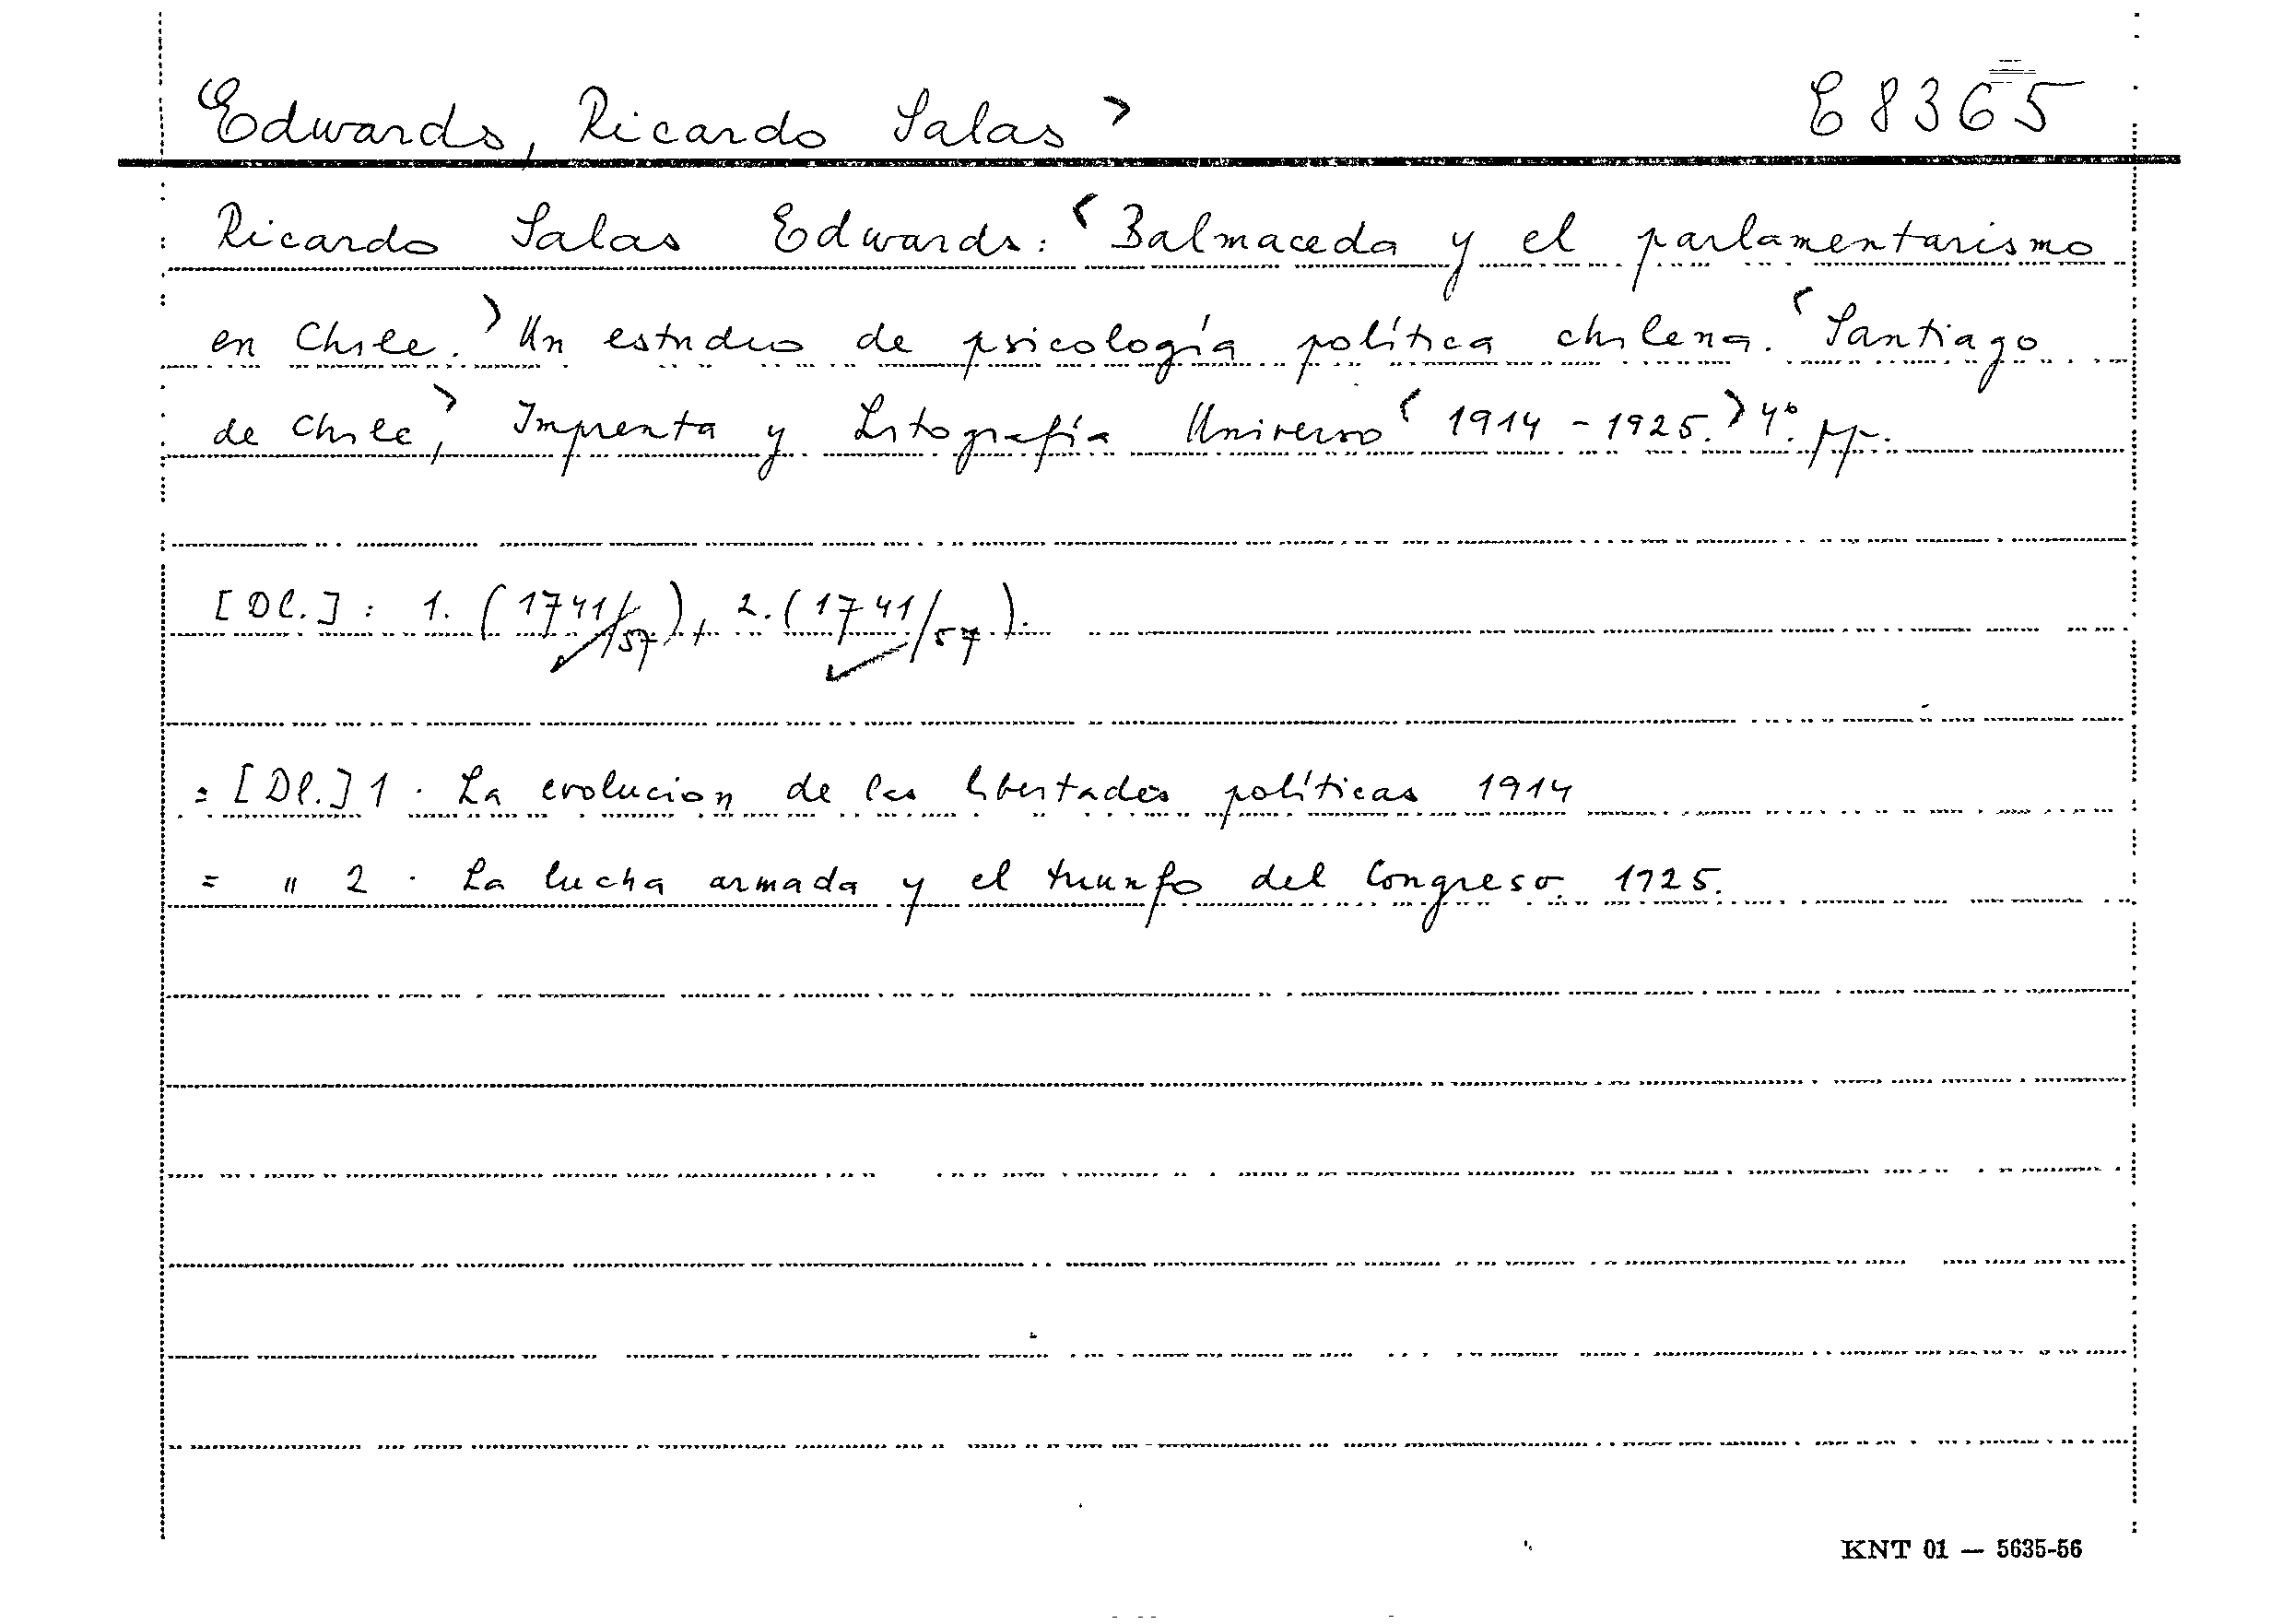 Edwards, Ricardo Salas > E8365
Ricardo Salas Edwards: <Balmaceda y el parlamentarismo
en Chile.> Un estudio de psicología política chilena. <Santiago
de Chile,> Imprenta y Litografía Universo <1914 - 1925.> 4º. pp.
[Dl.] : 1. (1741/57), 2. (1741/57).
= [Dl.] 1 · La evolucion de las libertades políticas 1914
= " 2 · La lucha armada y el triunfo del Congreso. 1925.
KNT 01 — 5635-56